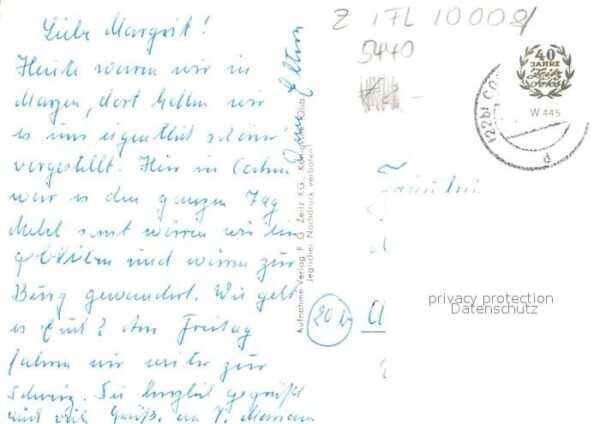 Liebe Margrit!
Heute waren wir in
dort hatten wir
es uns eigentlich schöner
vorgestellt. Hier in
war es den ganzen Tag
sonst wären wir
geblieben und wären zur
Burg gewandert. Wie geht
es Euch? Am Freitag
fahren wir weiter zur
Schweiz. Sei herzlich gegrüßt
und viele Grüße an
Eltern
Aufnahme Verlag F. G. Zeitz KG., Königssee/Obb.
Jeglicher Nachdruck verboten!
Z 17L 10008
5440
40
JAHRE
Zeitz
Fotos
W 445
(22b) CO
d
Fräulein
20 b
privacy protection
Datenschutz